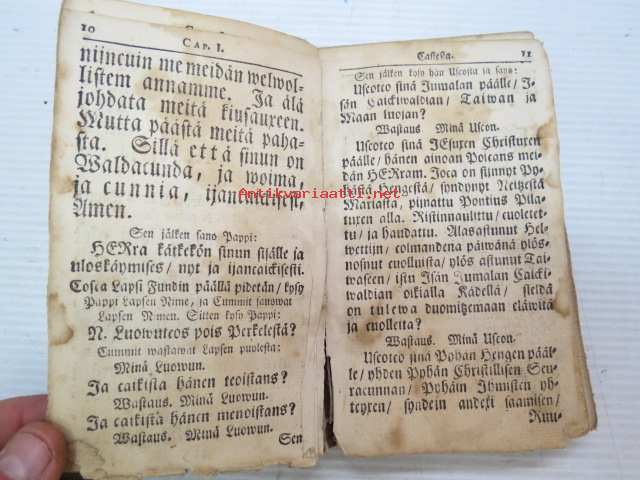 10
CAP. I.
nijncuin me meidän welwol-
listem annamme. Ja älä
johdata meitä kiusauxeen.
Mutta päästä meitä paha-
sta. Sillä että sinun on
Waldacunda, ja woima,
ja cunnia, ijancaickisest,
Amen.
Sen jälken sano Pappi:
HERra kätkekön sinun sisälle ja
uloskäymises / nyt ja ijancaickisesti.
Cosca Lapsi Fundin päällä pidetän / kysy
Pappi Lapsen Nime, ja Cummit sanowat
Lapsen Nimen. Sitten kysy Pappi:
N. Luowuteos pois Perkelestä?
Cummit wastawat Lapsen puolesta:
Minä Luowun.
Ja caikista hänen teoistans?
Wastaus. Minä Luowun.
Ja caikista hänen menoistans?
Wastaus. Minä Luowun.
Sen
Castesta. 11
Sen jälken kysy hän Uscosta ja sano:
Uscotco sinä Jumalan päälle / I-
sän Caickiwaldian / Taiwan ja
Maan luojan?
Wastaus. Minä Uscon.
Uscotco sinä JEsuxen Christuxen
päälle / hänen ainoan Poicans mei-
dän HERram. Joca on siinnyt Py-
hästä Hengestä / syndynyt Neitzestä
Mariasta, pijnattu Pontius Pila-
tuxen alla. Ristinnaulittu / cuoletet-
tu / ja haudattu. Alasastunut Hel-
wettijn / colmandena päiwänä ylös-
nosnut cuolluista / ylös astunut Tai-
waseen / istu Isän Jumalan Caicki-
waldian oikialla Kädellä / sieldä
on tulewa duomitzemaan eläwitä
ja cuolleita?
Wastaus. Minä Uscon.
Uscotco sinä Pyhän Hengen pääl-
le / yhden Pyhän Christillisen Seu-
racunnan / Pyhäin Ihmisten yh-
teyxen / syndein andexi saamisen /
Ruu-
Antikvariaatti.net